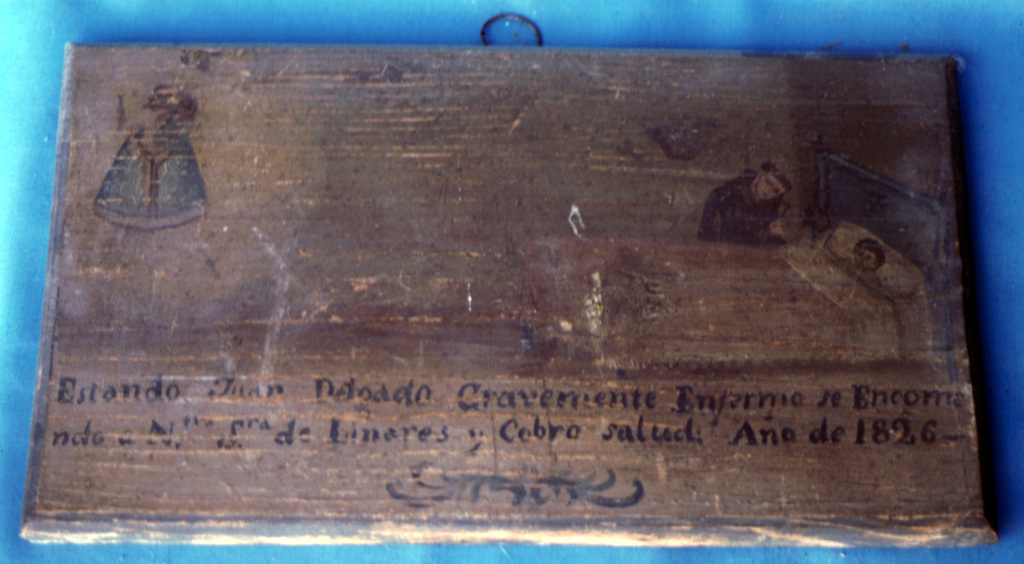 Estando Juan Delgado Gravemente Enfermo se Encome
ndo a N.tra Sra de Linares y Cobro salud. Año de 1826